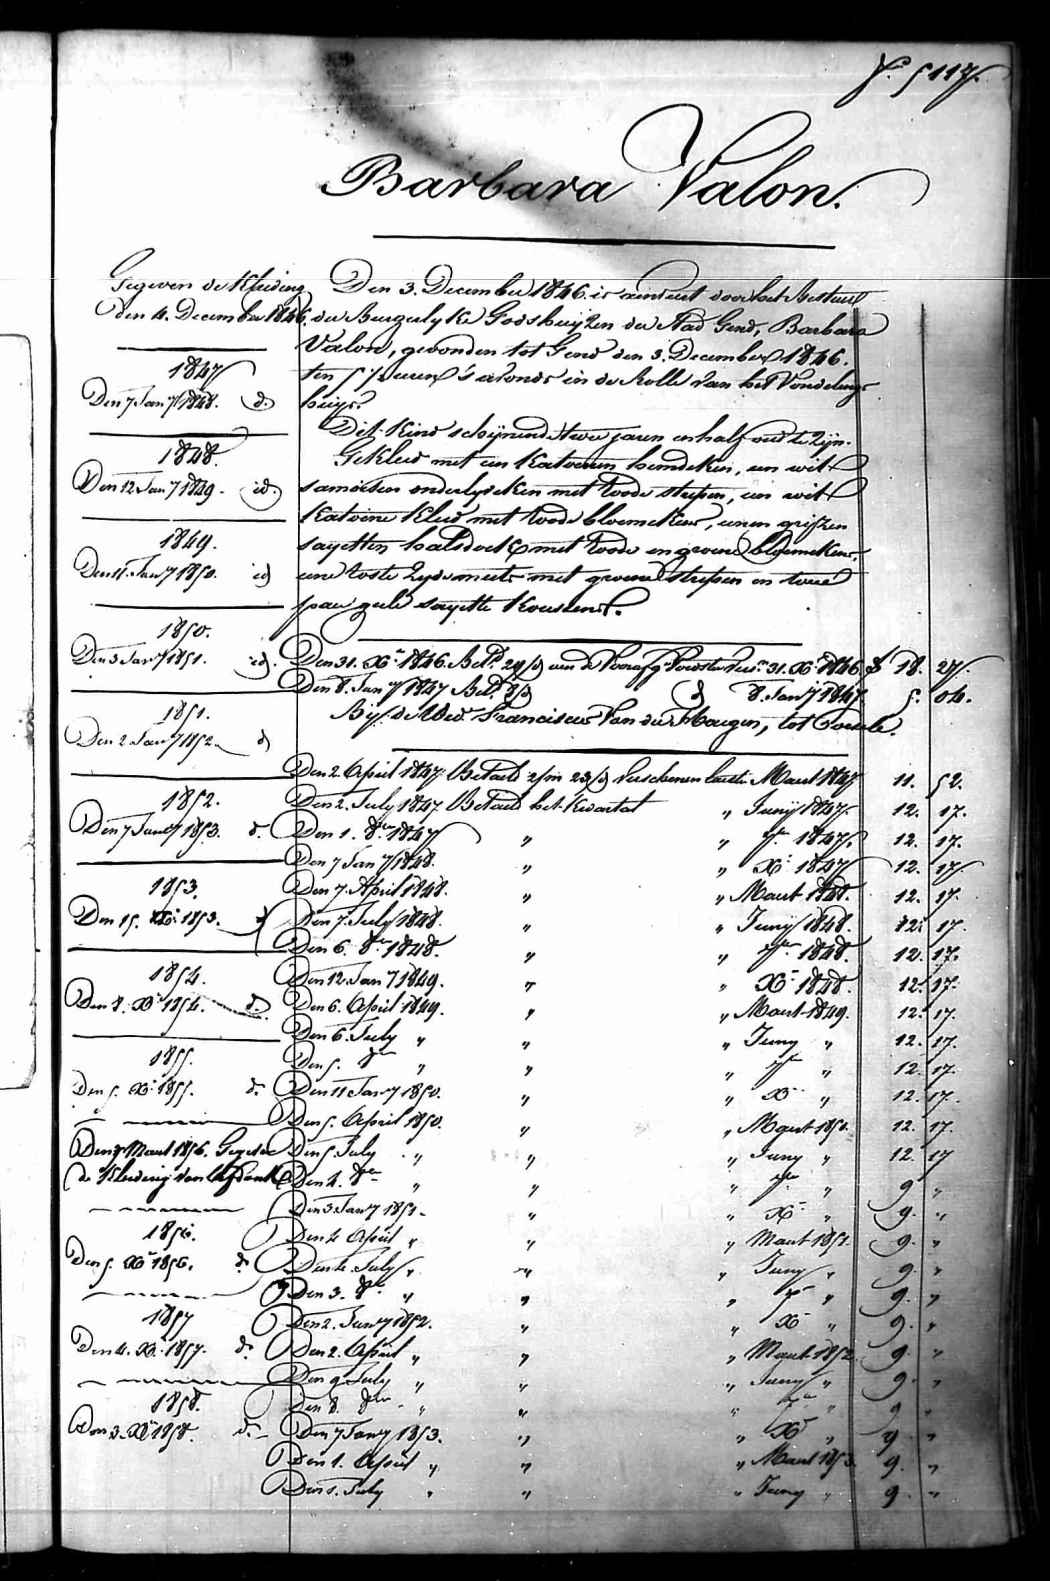 f.° 5117.
Barbara Valon.
Gegeven de Kleeding
den 4. December 1846.
1847
Den 7 Jan.y 1848. d.°
1848.
Den 12 Jan.y 1849. id.
1849.
Den 11. Jan.y 1850. id
1850.
Den 3 Jan.y 1851. id.
1851.
Den 2 Jan.y 1852. d.°
1852.
Den 7 Jan.y 1853. d.°
1853.
Den 15. X.e 1853. d.°
1854.
Den 8. X.e 1854. d.°
1855.
Den 5. X.e 1855. d.°
Den Maart 1856. Gegeven
de Kleeding van
1856.
Den 5. X.e 1856. d.°
1857
Den 4. X.e 1857. d.°
1858.
Den 3. X.e 1858. d.°
Den 3. December 1846. is door het Bestuur
der Burgerlyke Godshuyzen der Stad Gend, Barbara
Valon, gevonden tot Gend den 3. December 1846.
ten 5 ½ euren 's avonds in de Rolle van het Vondelings
huys.
Dit Kind schijnende twee jaren en half oud te zijn.
Gekleed met een Katoenen hemdeken, een wit
onderlyveken met roode strepen, een wit
Katoene Kleed met roode bloemekens, eenen grijzen
sayetten halsdoek met roode en groene bloemekens,
eene roste zyde muts met groene strepen en twee
paer geele sayette Kousens.
Den 31. X.e 1846. Bet.d 29/d aen de 31. X.e 1846 f 18. 27.
Den 8. Jan.y 1847 Bet.d 8/d d.° 8. Jan.y 1847. 5. 04.
Bij de Wed. Franciscus Van der Haegen, tot
Den 2. April 1847. Betaelt 2/m 23/d verschenen laetste Maart 1847 11. 52.
Den 2. July 1847. Betaelt het Kwartael " Juny 1847. 12. 17.
Den 1. 8.e 1847 " " 7.e 1847. 12. 17.
Den 7 Jan.y 1848. " " X.e 1847 12. 17
Den 7. April 1848. " " Maart 1848. 12. 17.
Den 7. July 1848. " " Juny 1848. 12. 17.
Den 6. 8.e 1848. " " 7.e 1848. 12. 17.
Den 12 Jan.y 1849. " " X.e 1848. 12. 17.
Den 6. April 1849. " " Maart 1849. 12. 17.
Den 6. July " " " Juny " 12. 17.
Den 5. 8.e " " " 7.e " 12. 17.
Den 11 Jan.y 1850. " " X.e " 12. 17.
Den 5. April 1850. " " Maart 1850. 12. 17.
Den 5 July " " " Juny " 12. 17
Den 4. 8.e " " " 7.e " 9 "
Den 3 Jan.y 1851. " " X.e " 9. "
Den 4 April " " " Maart 1851. 9. "
Den 4. July " " " Juny " 9. "
Den 3. 8.e " " " 7.e " 9. "
Den 2. Jan.y 1852. " " X.e " 9. "
Den 2. April " " " Maart 1852 9. "
Den 9 July " " " Juny " 9. "
Den 8. 8.e " " " 7.e " 9 "
Den 7 Jan.y 1853. " " X.e " 9. "
Den 1. April " " " Maart 1853. 9. "
Den 1. July " " " Juny " 9. "